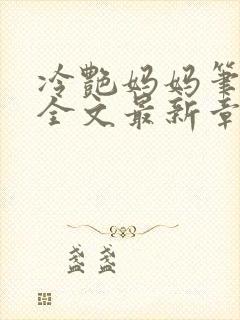 冷艷妈妈筆
全文最新章
盏盏